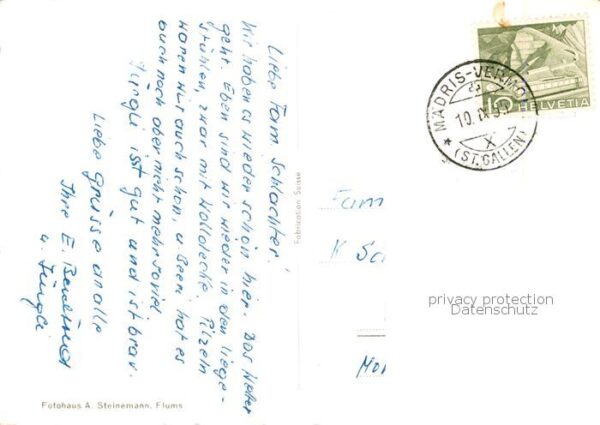 Liebe Fam. Schlachter!
Wir haben es wieder schön hier. Das Wetter
geht. Eben sind wir wieder in den Liege-
stühlen, zwar mit Wolldecke. Pilzeln
waren wir auch schon. u. Beeri hat es
auch noch aber nicht mehr soviel
Jürgli ist gut und ist brav.
Liebe Grüsse an alle
Ihre E.
u. Jürgli
Fotohaus A. Steinemann, Flums
Fabrication Suisse
MADRIS-VERMOL
10. IX 5
X
(ST. GALLEN)
10 HELVETIA
Fam
K Sc
Mon
privacy protection
Datenschutz